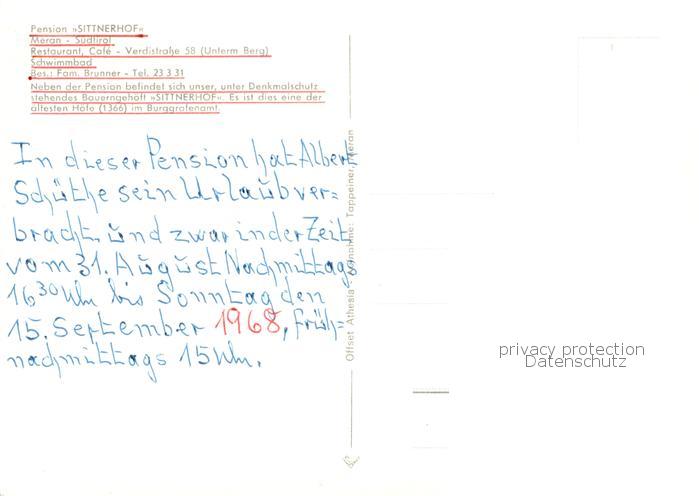 Pension »SITTNERHOF«
Meran - Südtirol
Restaurant, Café - Verdistraße 58 (Unterm Berg)
Schwimmbad
Bes.: Fam. Brunner - Tel. 23 3 31
Neben der Pension befindet sich unser, unter Denkmalschutz
stehendes Bauerngehöft »SITTNERHOF«. Es ist dies eine der
ältesten Höfe (1366) im Burggrafenamt.
In dieser Pension hat Albert
Schüthe sein Urlaub ver=
bracht. und zwar in der Zeit
vom 31. August Nachmittags
16³⁰ Uhr bis Sonntag den
15. September 1968, früh=
nachmittags 15 Uhr.
Offset Athesia - Aufnahme: Tappeiner, Meran
privacy protection
Datenschutz